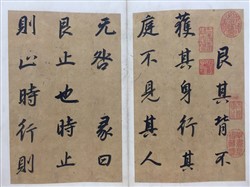 艮其背不
獲其身行其
庭不見其人
无咎 彖曰
艮止也時止
則止時行則